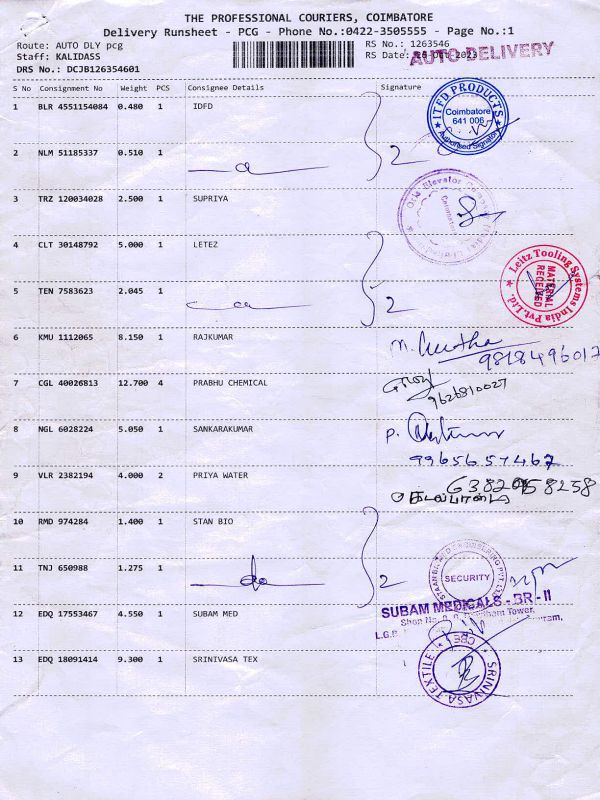 THE PROFESSIONAL COURIERS, COIMBATORE
Delivery Runsheet - PCG - Phone No.:0422-3505555 - Page No.:1
Route: AUTO DLY pcg
RS No.: 1263546
Staff: KALIDASS
RS Date: 26-Oct-2023
AUTO DELIVERY
DRS No.: DCJB126354601
S No Consignment No Weight PCS Consignee Details Signature
1 BLR 4551154084 0.480 1 IDFD
ITFD PRODUCTS
Coimbatore
641 006
Authorised Signatory
2 NLM 51185337 0.510 1
2
3 TRZ 120034028 2.500 1 SUPRIYA
Coimbatore
4 CLT 30148792 5.000 1 LETEZ
Leitz Tooling Systems India Pvt. Ltd.
MATERIAL
RECEIVED
5 TEN 7583623 2.045 1
2
6 KMU 1112065 8.150 1 RAJKUMAR
9818496017
7 CGL 40026813 12.700 4 PRABHU CHEMICAL
9626810027
8 NGL 6028224 5.050 1 SANKARAKUMAR
P.
9965657467
9 VLR 2382194 4.000 2 PRIYA WATER
10 RMD 974284 1.400 1 STAN BIO
11 TNJ 650988 1.275 1
do
2
SECURITY
12 EDQ 17553467 4.550 1 SUBAM MED
SUBAM MEDICALS - BR - II
13 EDQ 18091414 9.300 1 SRINIVASA TEX
SRINIVASA TEXTILE
CBE